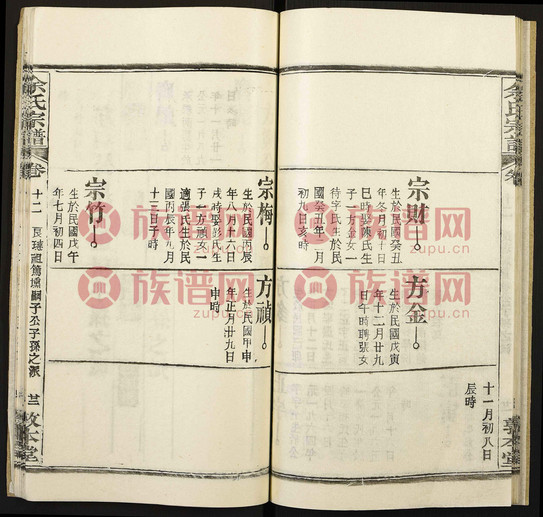 十一月初八日
辰時
宗財
生於民國癸丑
年冬月初十日
巳時娶陳氏生
子一方金女一
待字氏生於民
國癸丑年八月
初九日亥時
方金
生於民國戊寅
年十二月廿九
日午時聘張女
宗梅
生於民國丙辰
年八月十六日
戌時娶彭氏生
子一方禎女一
適張氏生於民
國丙辰年九月
十三日子時
方禎
生於民國甲申
年正月廿九日
申時
宗竹
生於民國戊午
年七月初四日
余氏宗譜
卷
十二
子公子孫之派
敦本堂
余氏宗譜
族谱网
zupu.cn
族谱网
zupu.cn
族谱网
zupu.cn
族谱网
zupu.cn